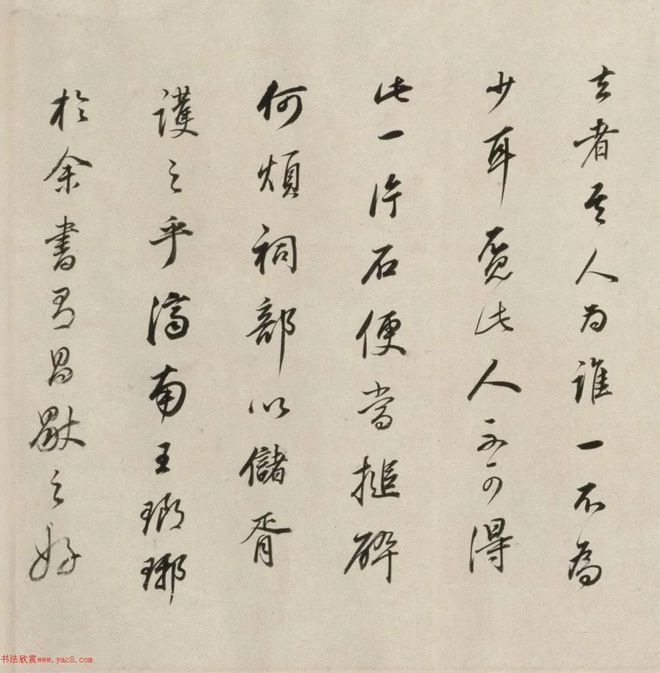 去者其人為誰一不為
少耳覓此人不可得
此一片石便當搥碎
何煩祠部以儲胥
護之乎濟南王瑯琊
於余書有昌歜之好
书法欣赏www.yac8.com